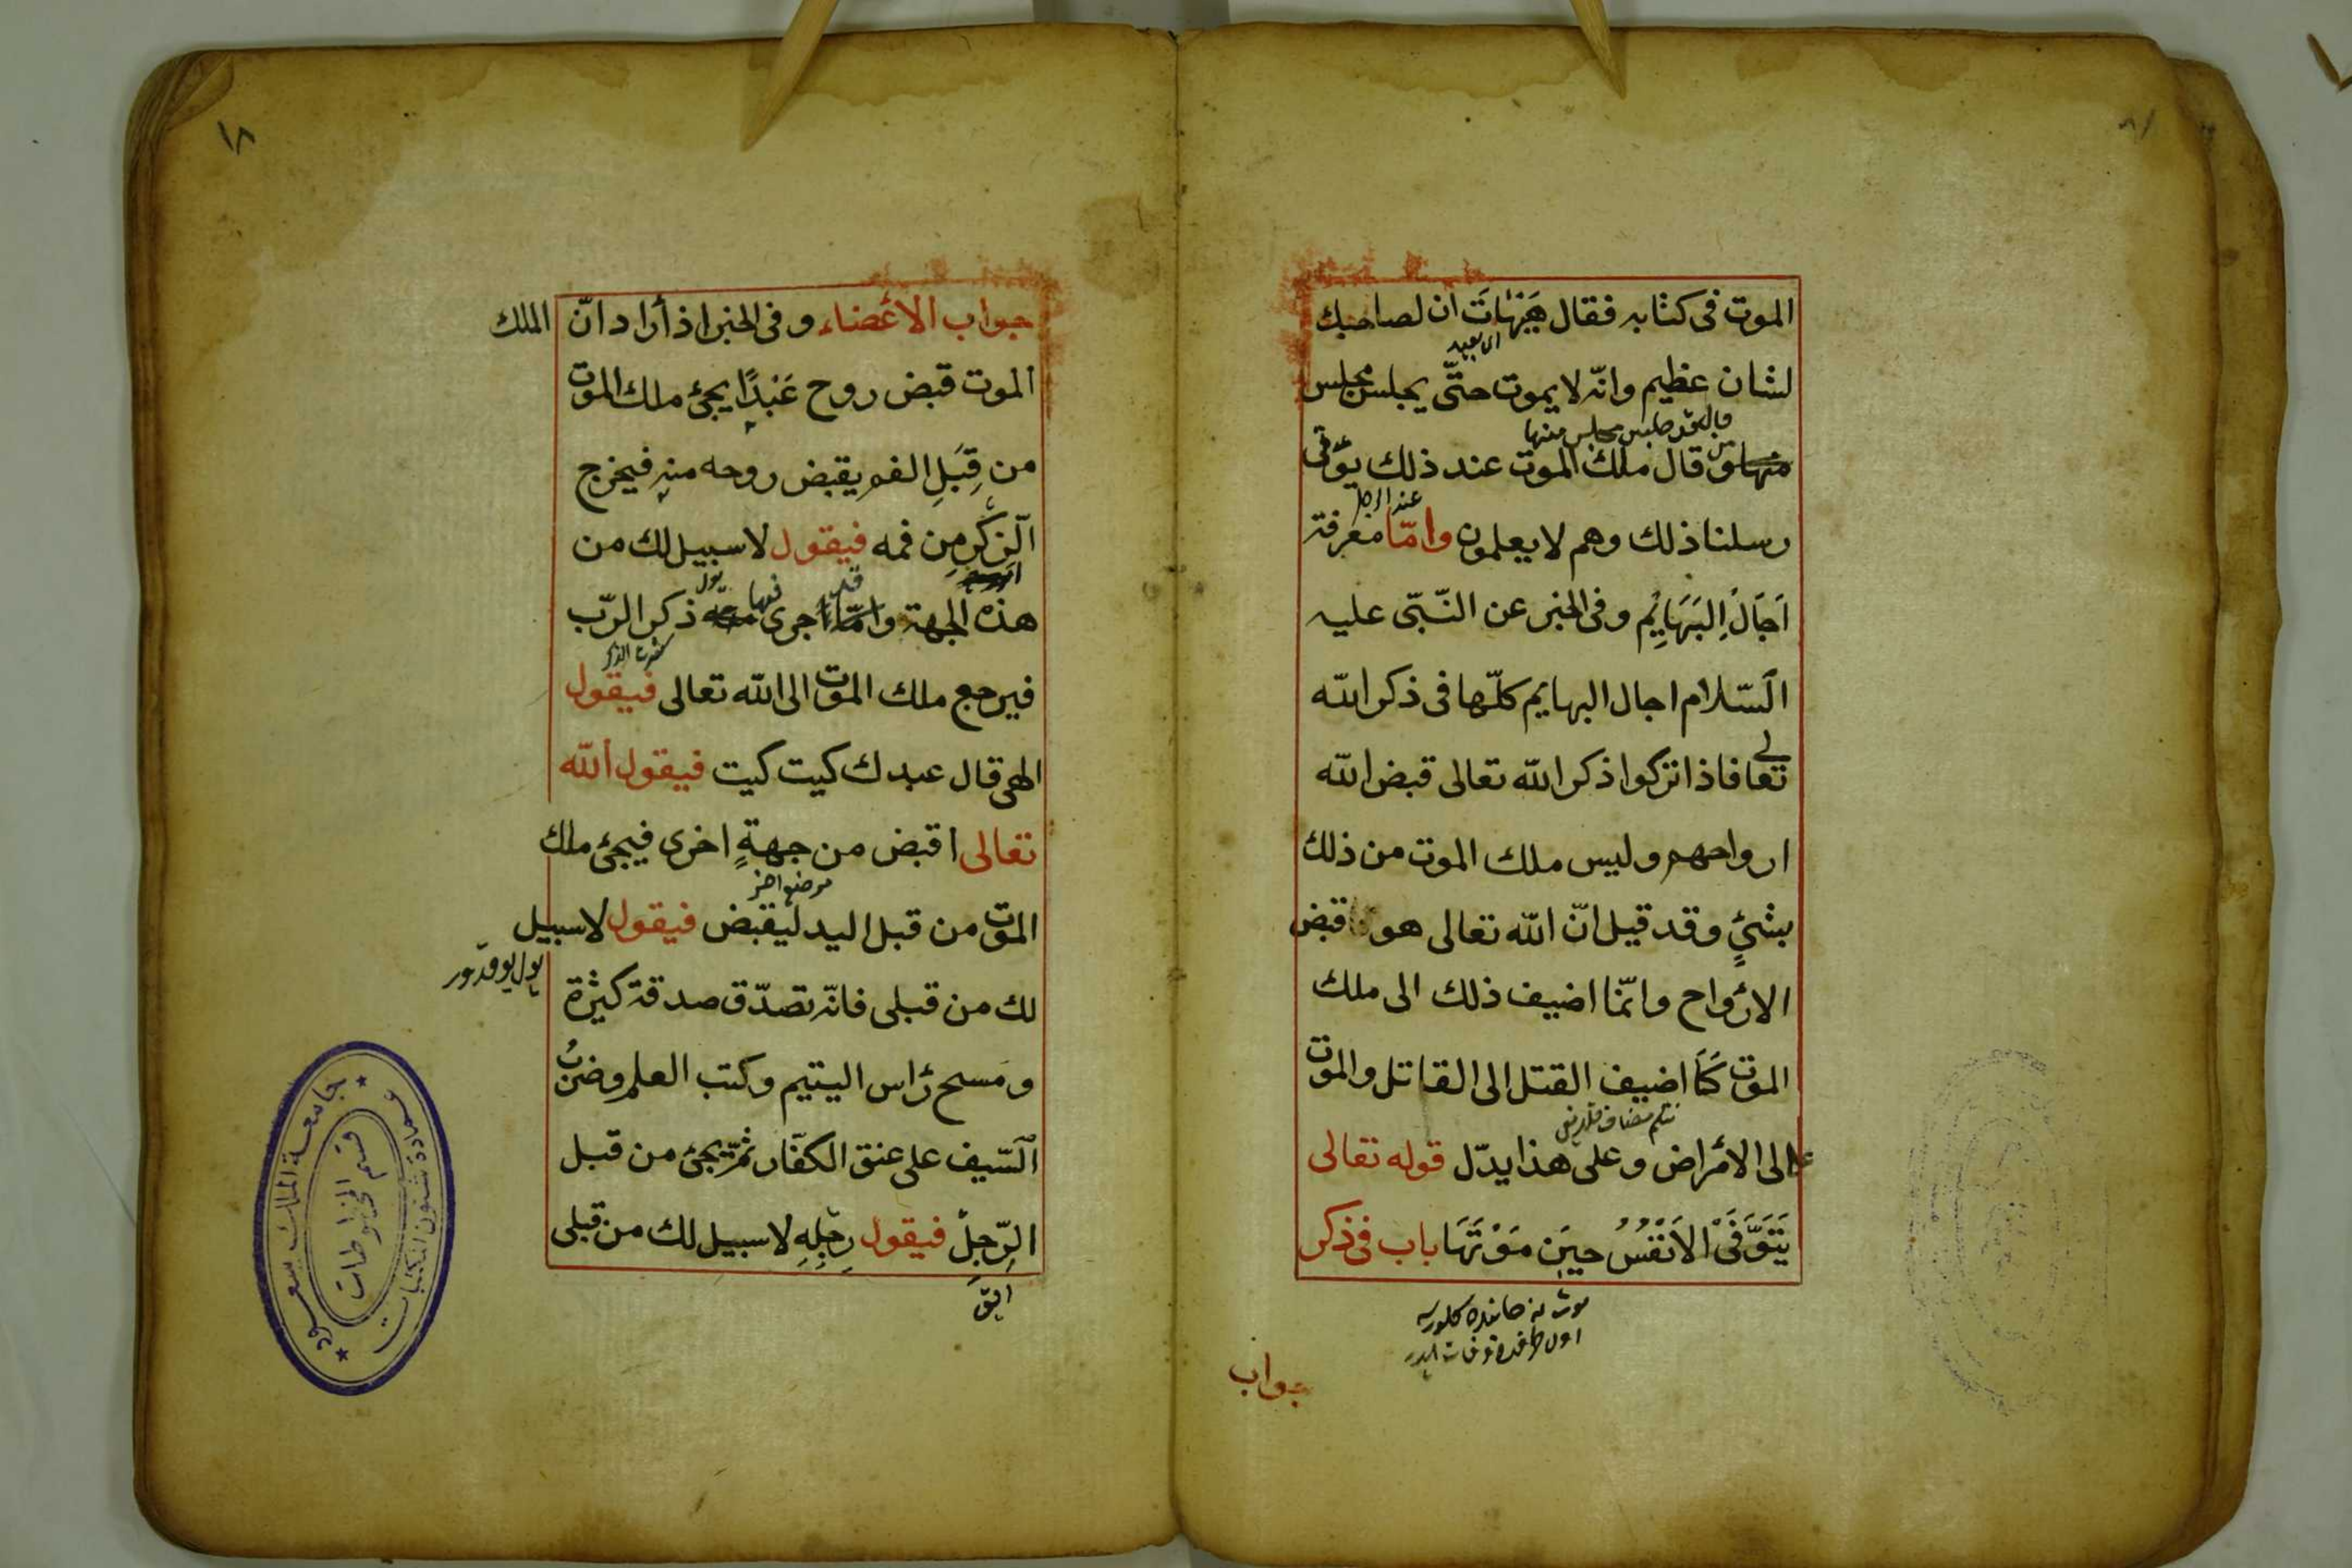 الموت فى كتابه فقال هَيْهَاتَ ان لصاحبك
اى بعيد
لشان عظيم وانّه لا يموت حتّى يجلس مجلس
منها قال ملك الموت عند ذلك يؤفى
رسلنا ذلك وهم لا يعلمون وامّا معرفة
اَجَالُ اِلبَهَايِمِ وفى الخبر عن النّبىّ عليه
السّلام اجال البهايم كلّها فى ذكر الله
تعالى فاذا تركوا ذكر الله تعالى قبض الله
ارواحهم وليس ملك الموت من ذلك
بشئٍ وقد قيل انّ الله تعالى هو قبض
الارْواح وانّما اضيف ذلك الى ملك
الموت كَمَا اضيف القتل الى القاتل والموت
الى الامْراض وعلى هذا يدّل قوله تعالى
يَتَوَّفَىْ الاَنْفُسُ حِيَن مَوْتَهَا باب فى ذكر
جواب
١٨
جواب الاعْضاء وفى الخبر اذ أراد انّ الملك
الموت قبض روح عَبْدًا يجئ ملك الموت
من قِبَلِ الفم يقبض روحه منه فيخرج
الّزكْرِ مِن فمه فيقول لا سبيل لك من
هذه الجهة وامّا اجرى فيها ذكر الرّب
فيرجع ملك الموت الى الله تعالى فيقول
الهى قال عبدك كيت كيت فيقول الله
تعالى اقبض من جهةٍ اخرى فيجئ ملك
موضع اخر
الموت من قبل اليد ليقبض فيقول لا سبيل
يول يوقدور
لك من قبلى فانّه تصدّق صدقة كثيرة
ومسح رْاس اليتيم وكتب العلم وضربُ
السّيف على عنق الكفّار ثمّ يجئ من قبل
الرّجِلْ فيقول رِجْلِهِ لا سبيل لك من قبلى
جامعة الملك سعود
عمادة شئون المكتبات
قسم المخطوطات